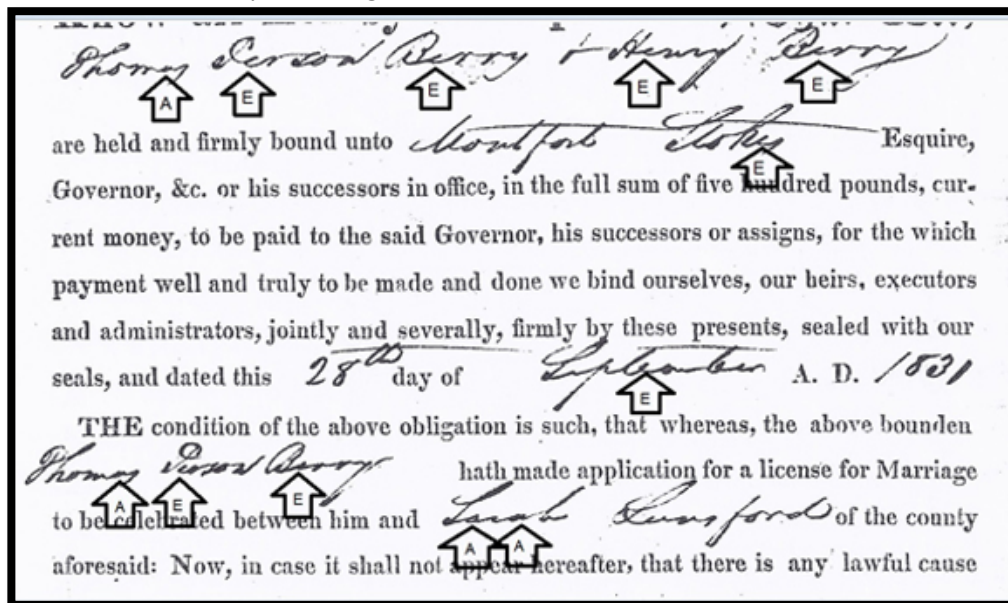 Thomas Person Berry + Henry Berry
A E E E E
are held and firmly bound unto Montfort Stokes Esquire,
E
Governor, &c. or his successors in office, in the full sum of five hundred pounds, cur-
rent money, to be paid to the said Governor, his successors or assigns, for the which
payment well and truly to be made and done we bind ourselves, our heirs, executors
and administrators, jointly and severally, firmly by these presents, sealed with our
seals, and dated this 28th day of September A. D. 1831
E
THE condition of the above obligation is such, that whereas, the above bounden
Thomas Person Berry hath made application for a license for Marriage
A E E
to be celebrated between him and Sarah Lunsford of the county
A A
aforesaid: Now, in case it shall not appear hereafter, that there is any lawful cause